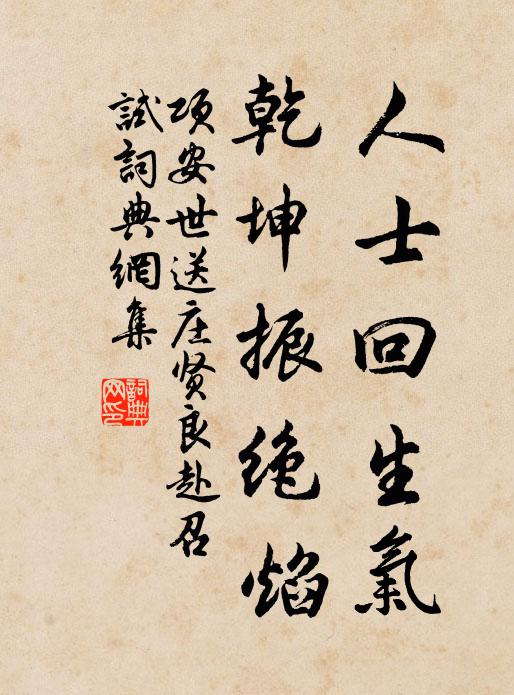 人士回生氣
乾坤振绝焰
项安世送庄贤良赴召
試詞典網集
詞典网印